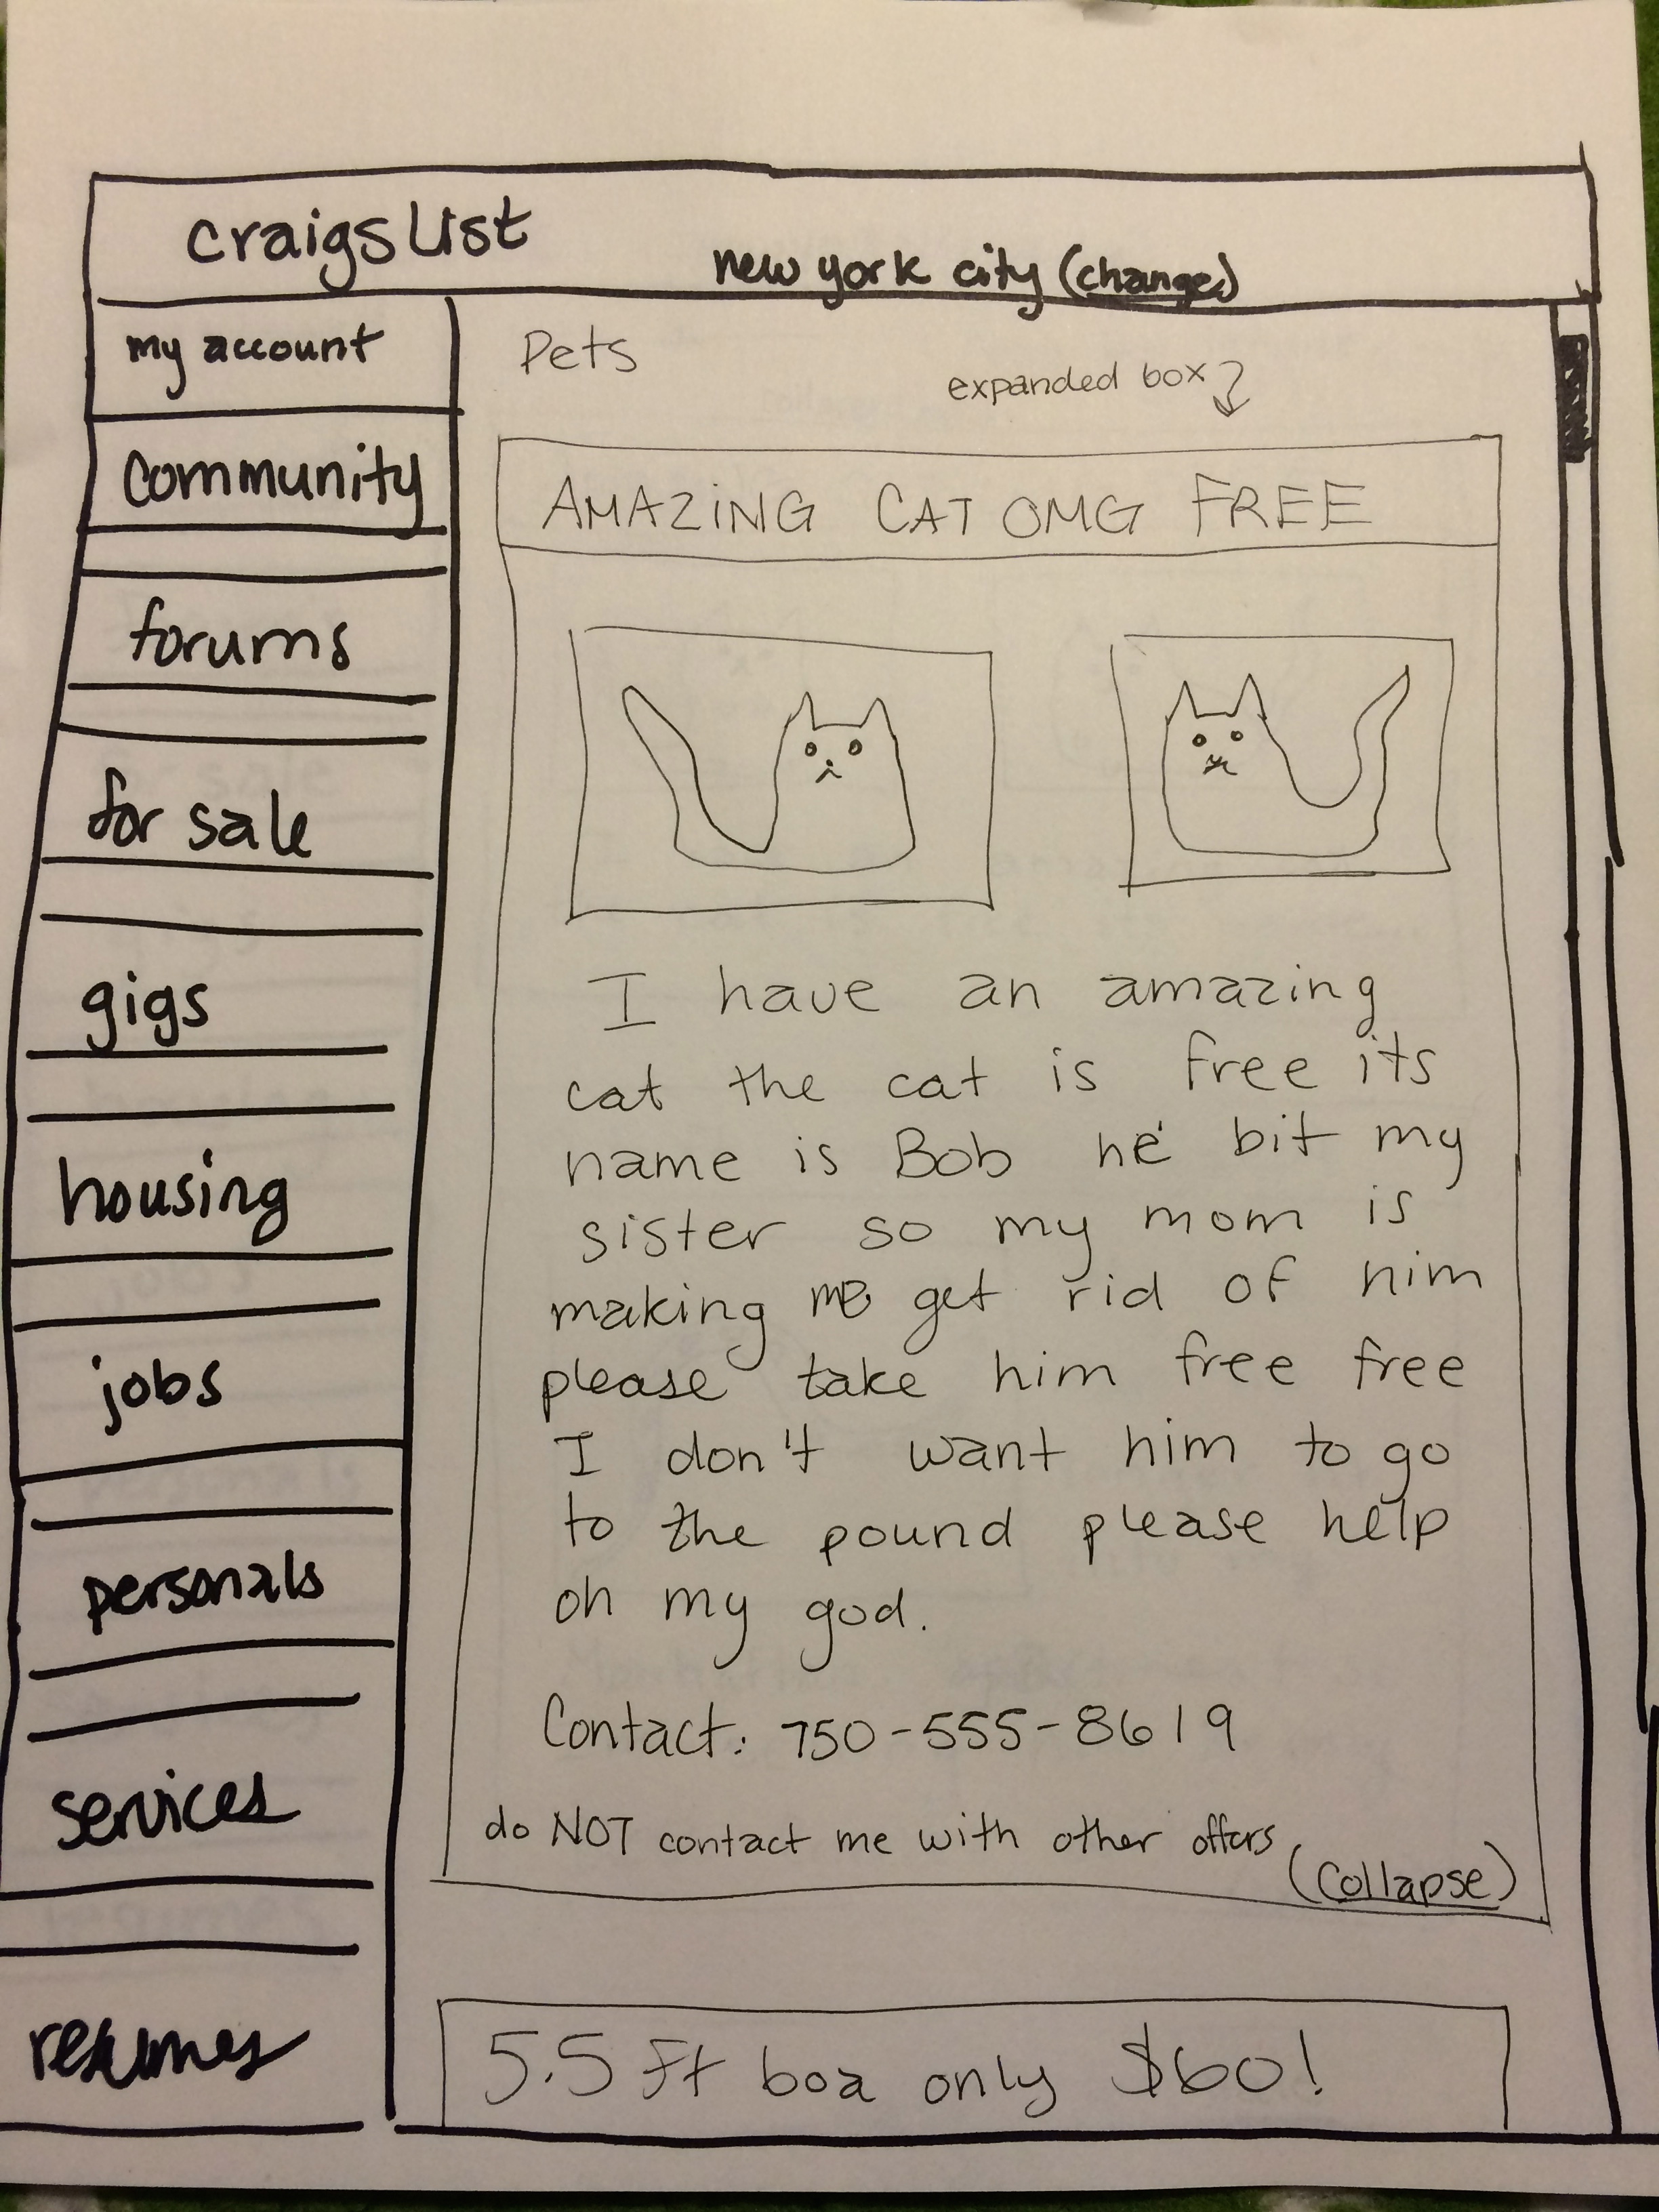 craigslist
new york city (change)
my account
community
forums
for sale
gigs
housing
jobs
personals
services
resumes
Pets
expanded box
AMAZING CAT OMG FREE
I have an amazing
cat the cat is free its
name is Bob he bit my
sister so my mom is
making me get rid of him
please take him free free
I don't want him to go
to the pound please help
oh my god.
Contact: 750-555-8619
do NOT contact me with other offers
(collapse)
5.5 ft boa only $60!